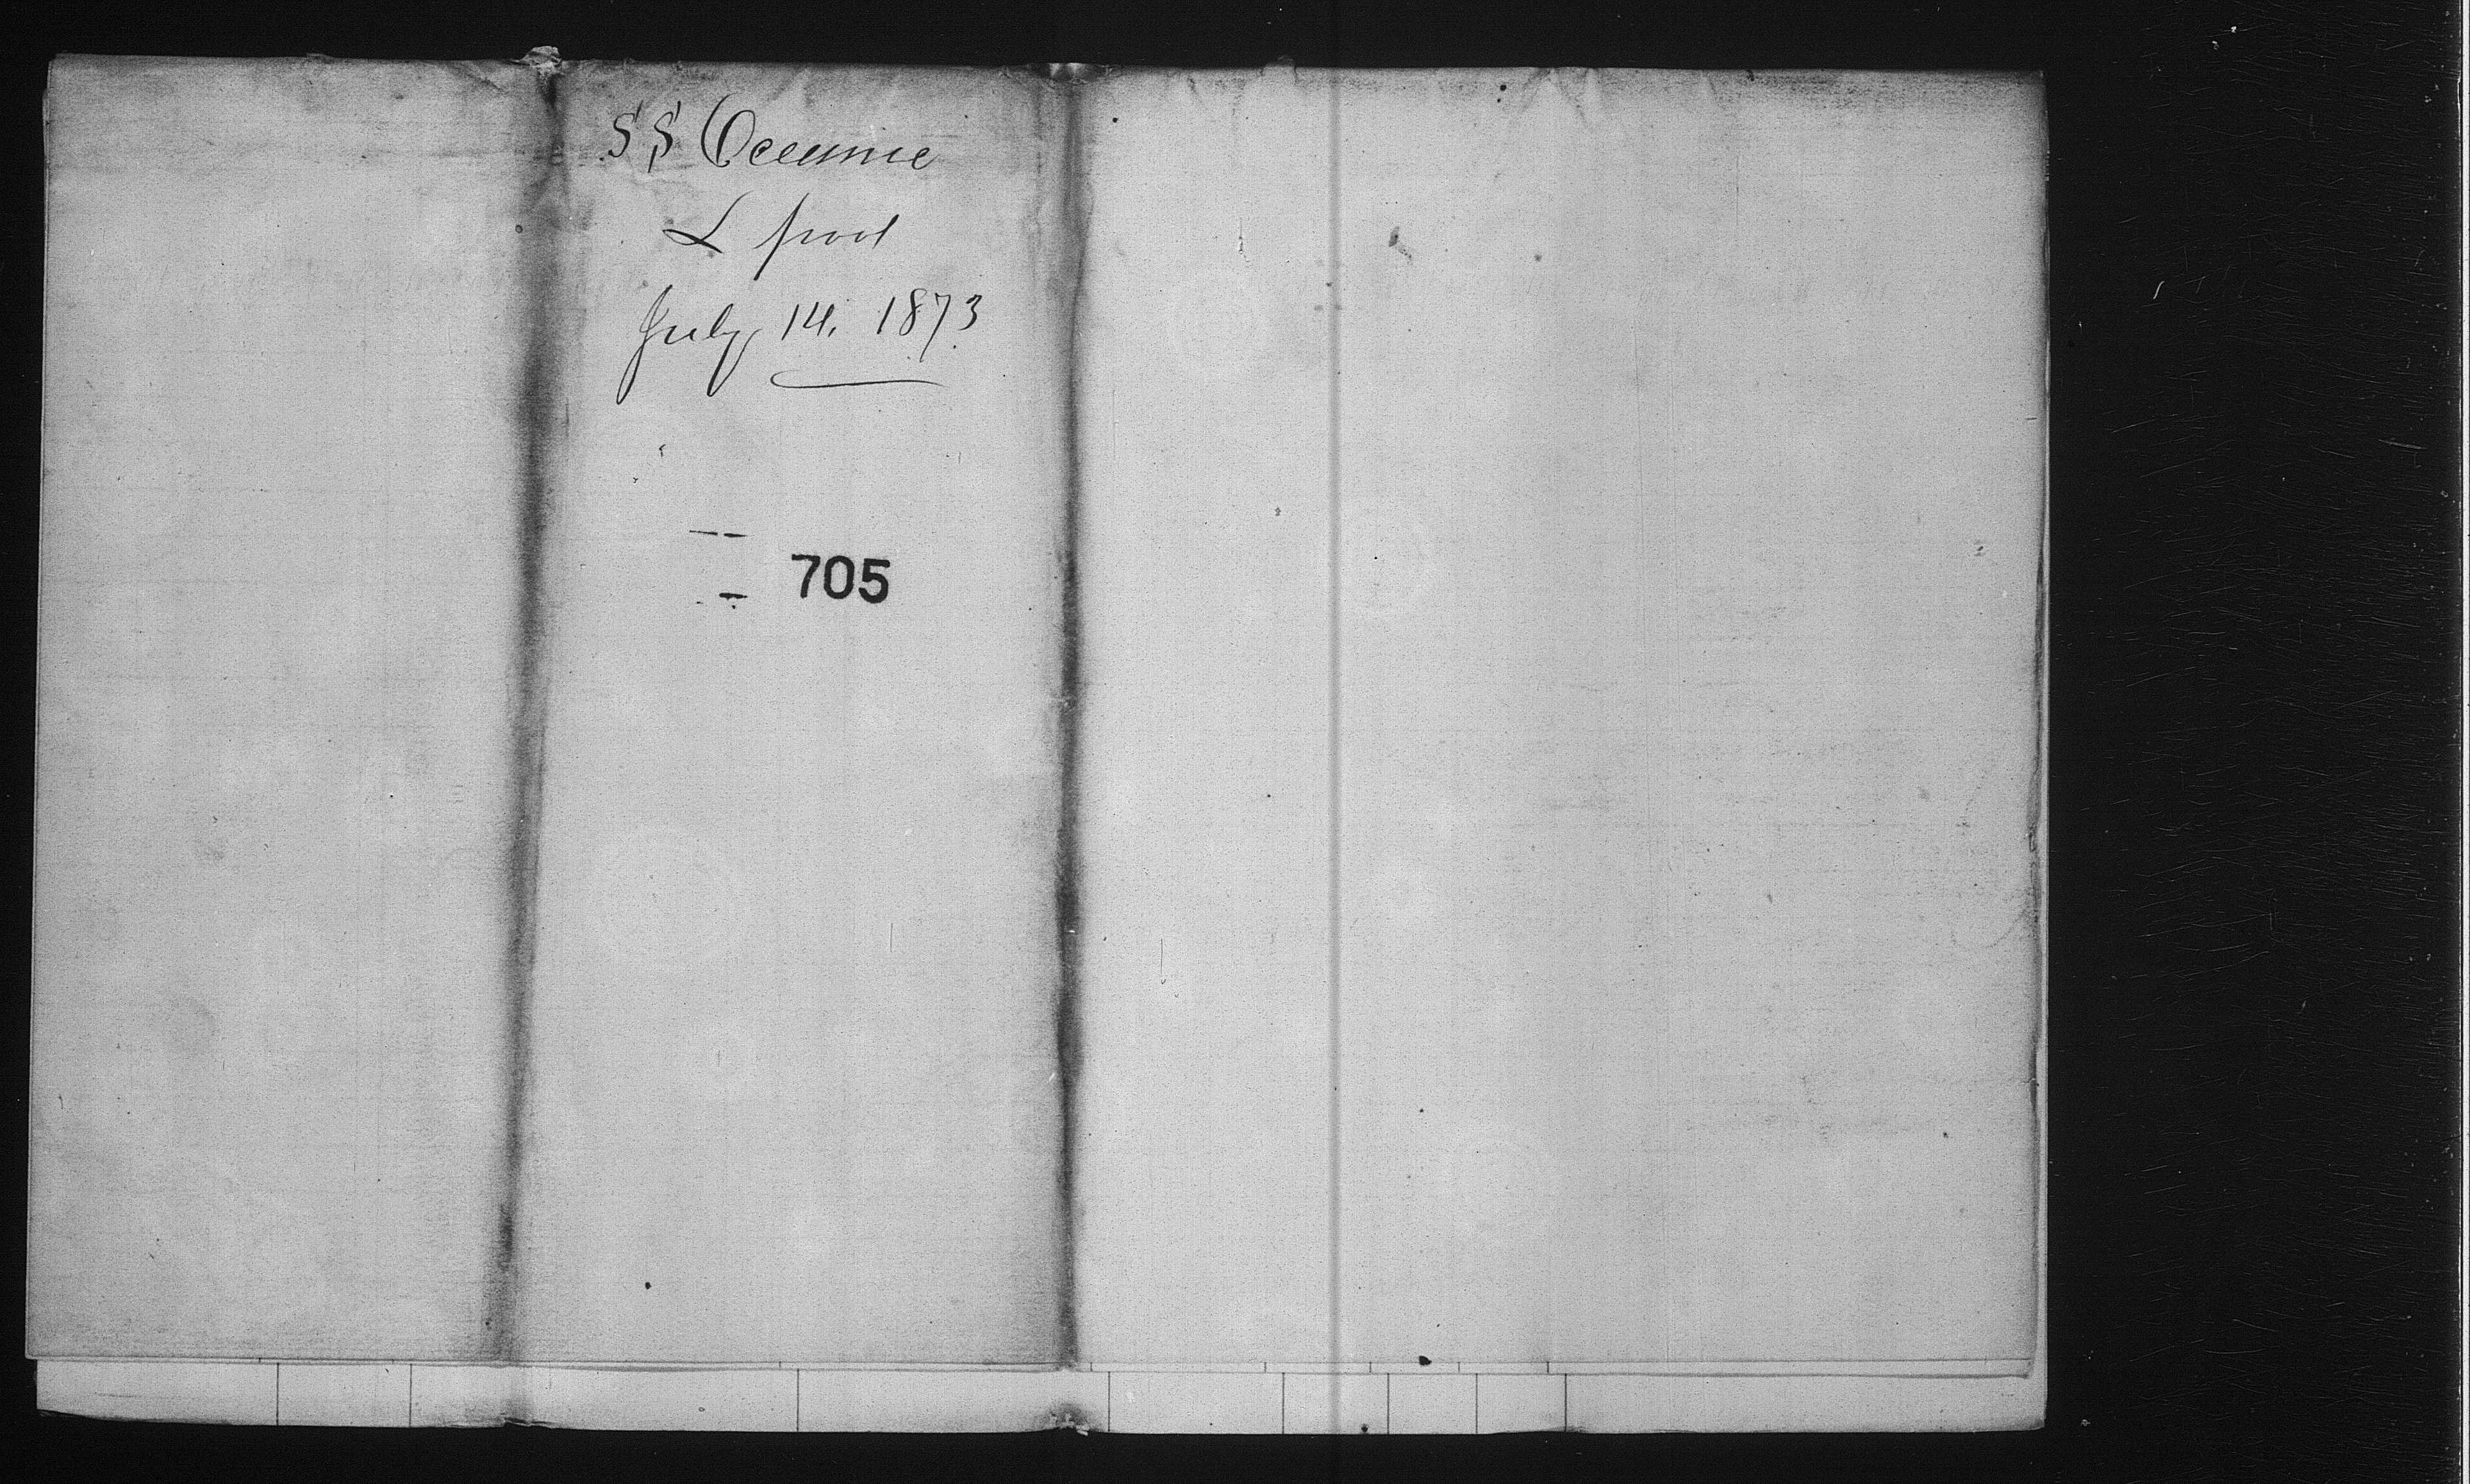 SS Oceanic
L pool
July 14. 1873
705